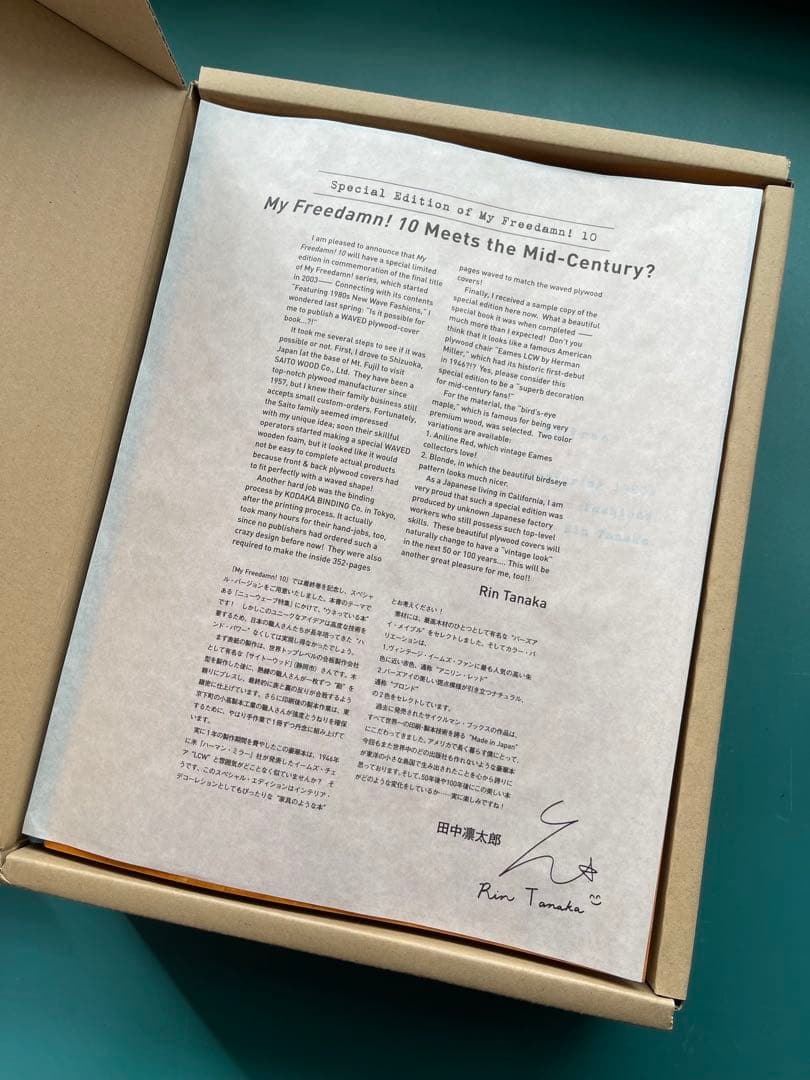 Special Edition of My Freedamn! 10
My Freedamn! 10 Meets the Mid-Century?
I am pleased to announce that My
Freedamn! 10 will have a special limited
edition in commemoration of the final title
of My Freedamn! series, which started
in 2003—— Connecting with its contents
"Featuring 1980s New Wave Fashions," I
wondered last spring: "Is it possible for
me to publish a WAVED plywood-cover
book...?!"
It took me several steps to see if it was
possible or not. First, I drove to Shizuoka,
Japan (at the base of Mt. Fuji) to visit
SAITO WOOD Co., Ltd. They have been a
top-notch plywood manufacturer since
1957, but I knew their family business still
accepts small custom-orders. Fortunately,
the Saito family seemed impressed
with my unique idea; soon their skillful
operators started making a special WAVED
wooden foam, but it looked like it would
not be easy to complete actual products
because front & back plywood covers had
to fit perfectly with a waved shape!
Another hard job was the binding
process by KODAKA BINDING Co. in Tokyo,
after the printing process. It actually
took many hours for their hand-jobs, too,
since no publishers had ordered such a
crazy design before now! They were also
required to make the inside 352-pages
pages waved to match the waved plywood
covers!
Finally, I received a sample copy of the
special edition here now. What a beautiful
special book it was when completed ——
much more than I expected! Don't you
think that it looks like a famous American
plywood chair "Eames LCW by Herman
Miller," which had its historic first-debut
in 1946?!? Yes, please consider this
special edition to be a "superb decoration
for mid-century fans!"
For the material, the "bird's-eye
maple," which is famous for being very
premium wood, was selected. Two color
variations are available:
1. Aniline Red, which vintage Eames
collectors love!
2. Blonde, in which the beautiful birdseye
pattern looks much nicer.
As a Japanese living in California, I am
very proud that such a special edition was
produced by unknown Japanese factory
workers who still possess such top-level
skills. These beautiful plywood covers will
naturally change to have a "vintage look"
in the next 50 or 100 years.... This will be
another great pleasure for me, too!!
Rin Tanaka
『My Freedamn! 10』では最終巻を記念し、スペシャ
ル・バージョンをご用意いたしました。本書のテーマで
ある「ニューウェーブ特集」にかけて、"ウネっている本"
です！ しかしこのユニークなアイデアは高度な技術を
要するため、日本の職人さんたちが長年培ってきた"ハ
ンド・パワー"なくしては実現し得なかったでしょう。
まず表紙の製作は、世界トップレベルの合板製作会社
として有名な「サイトーウッド」(静岡市) さんです。木
型を製作した後に、熟練の職人さんが一枚ずつ"勘"を
頼りにプレスし、最終的に表と裏の反りが合致するよう
緻密に仕上げています。さらに印刷後の製本作業は、東
京下町の小髙製本工業の職人さんが強度とうねりを確保
するために、やはり手作業で1冊ずつ丹念に組み上げて
います。
実に1年の製作期間を費やしたこの豪華本は、1946年
に米「ハーマン・ミラー」社が発表したイームズ・チェ
ア"LCW"と雰囲気がどことなく似ていませんか？ そ
うです、このスペシャル・エディションはインテリア・
デコレーションとしてもぴったりな"家具のような本"
とお考えください！
素材には、最高木材のひとつとして有名な"バーズア
イ・メイプル"をセレクトしました。そしてカラー・バ
リエーションは、
1.ヴィンテージ・イームズ・ファンに最も人気の高い朱
色に近い赤色、通称"アニリン・レッド"
2.バーズアイの美しい斑点模様が引き立つナチュラル、
通称"ブロンド"
の2色をセレクトしています。
過去に発売されたサイクルマン・ブックスの作品は、
すべて世界一の印刷・製本技術を誇る"Made in Japan"
にこだわってきました。アメリカで長く暮らす僕にとって、
今回もまた世界中のどの出版社も作れないような豪華本
が東洋の小さな島国で生み出されたことを心から誇りに
思っております。そして、50年後や100年後にこの美しい本
がどのような変化をしているか……実に楽しみですね！
田中凛太郎
Rin Tanaka